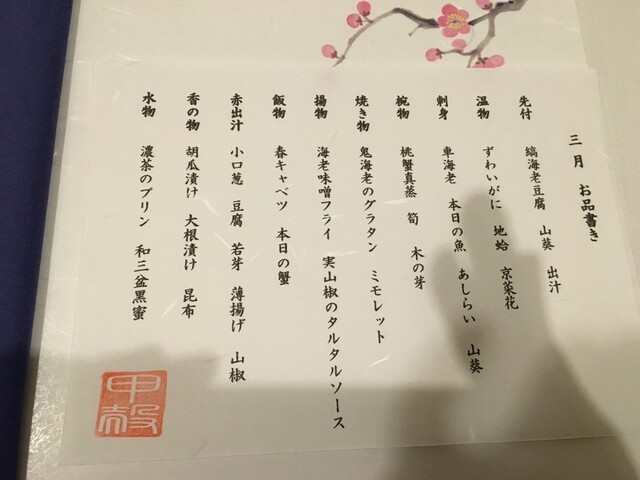 三月 お品書き
先付 縞海老豆腐 山葵 出汁
温物 ずわいがに 地蛤 京菜花
刺身 車海老 本日の魚 あしらい 山葵
椀物 桃蟹真蒸 筍 木の芽
焼き物 鬼海老のグラタン ミモレット
揚物 海老味噌フライ 実山椒のタルタルソース
飯物 春キャベツ 本日の蟹
赤出汁 小口葱 豆腐 若芽 薄揚げ 山椒
香の物 胡瓜漬け 大根漬け 昆布
水物 濃茶のプリン 和三盆黒蜜
甲殻